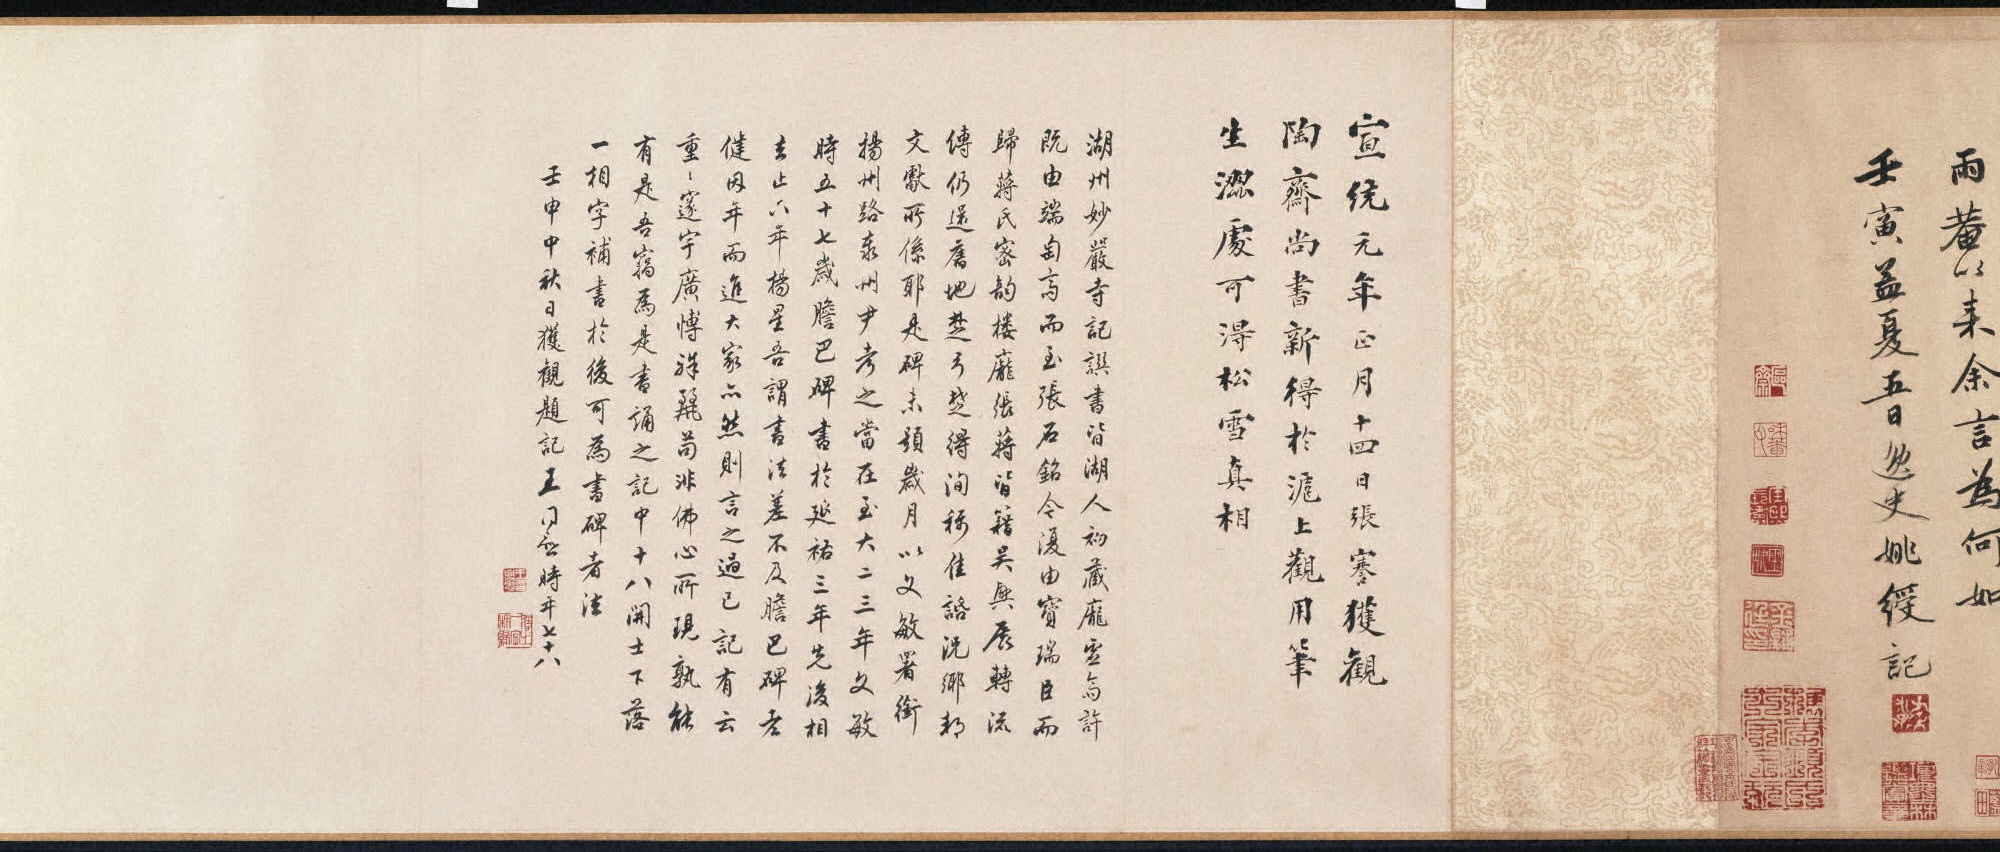 雨菴以来余言為何如
壬寅孟夏五日逸史姚綬記
宣統元年正月十四日張謇獲觀
陶齋尚書新得於滬上觀用筆
生澀處可得松雪真相
湖州妙嚴寺記譔書皆湖人初藏龐虛齋許
既由端匋高而至張石銘今復由寶瑞臣而
歸蔣氏密韵樓龐張蔣皆籍吳興展轉流
傳仍還舊地楚弓楚得洵稱佳話況鄉邦
文獻所係耶是碑未題歲月以文敏署銜
揚州路泰州尹考之當在至大二三年文敏
時五十七歲膽巴碑書於延祐三年先後相
去止六年楊星吾謂書法差不及膽巴碑老
健因年而進大家亦然則言之過已記有云
重重邃宇廣博殊麗苟非佛心所現孰能
有是吾竊為是書誦之記中十八開士下落
一相字補書於後可為書碑者法
壬申中秋日獲觀題記王同愈時年七十八